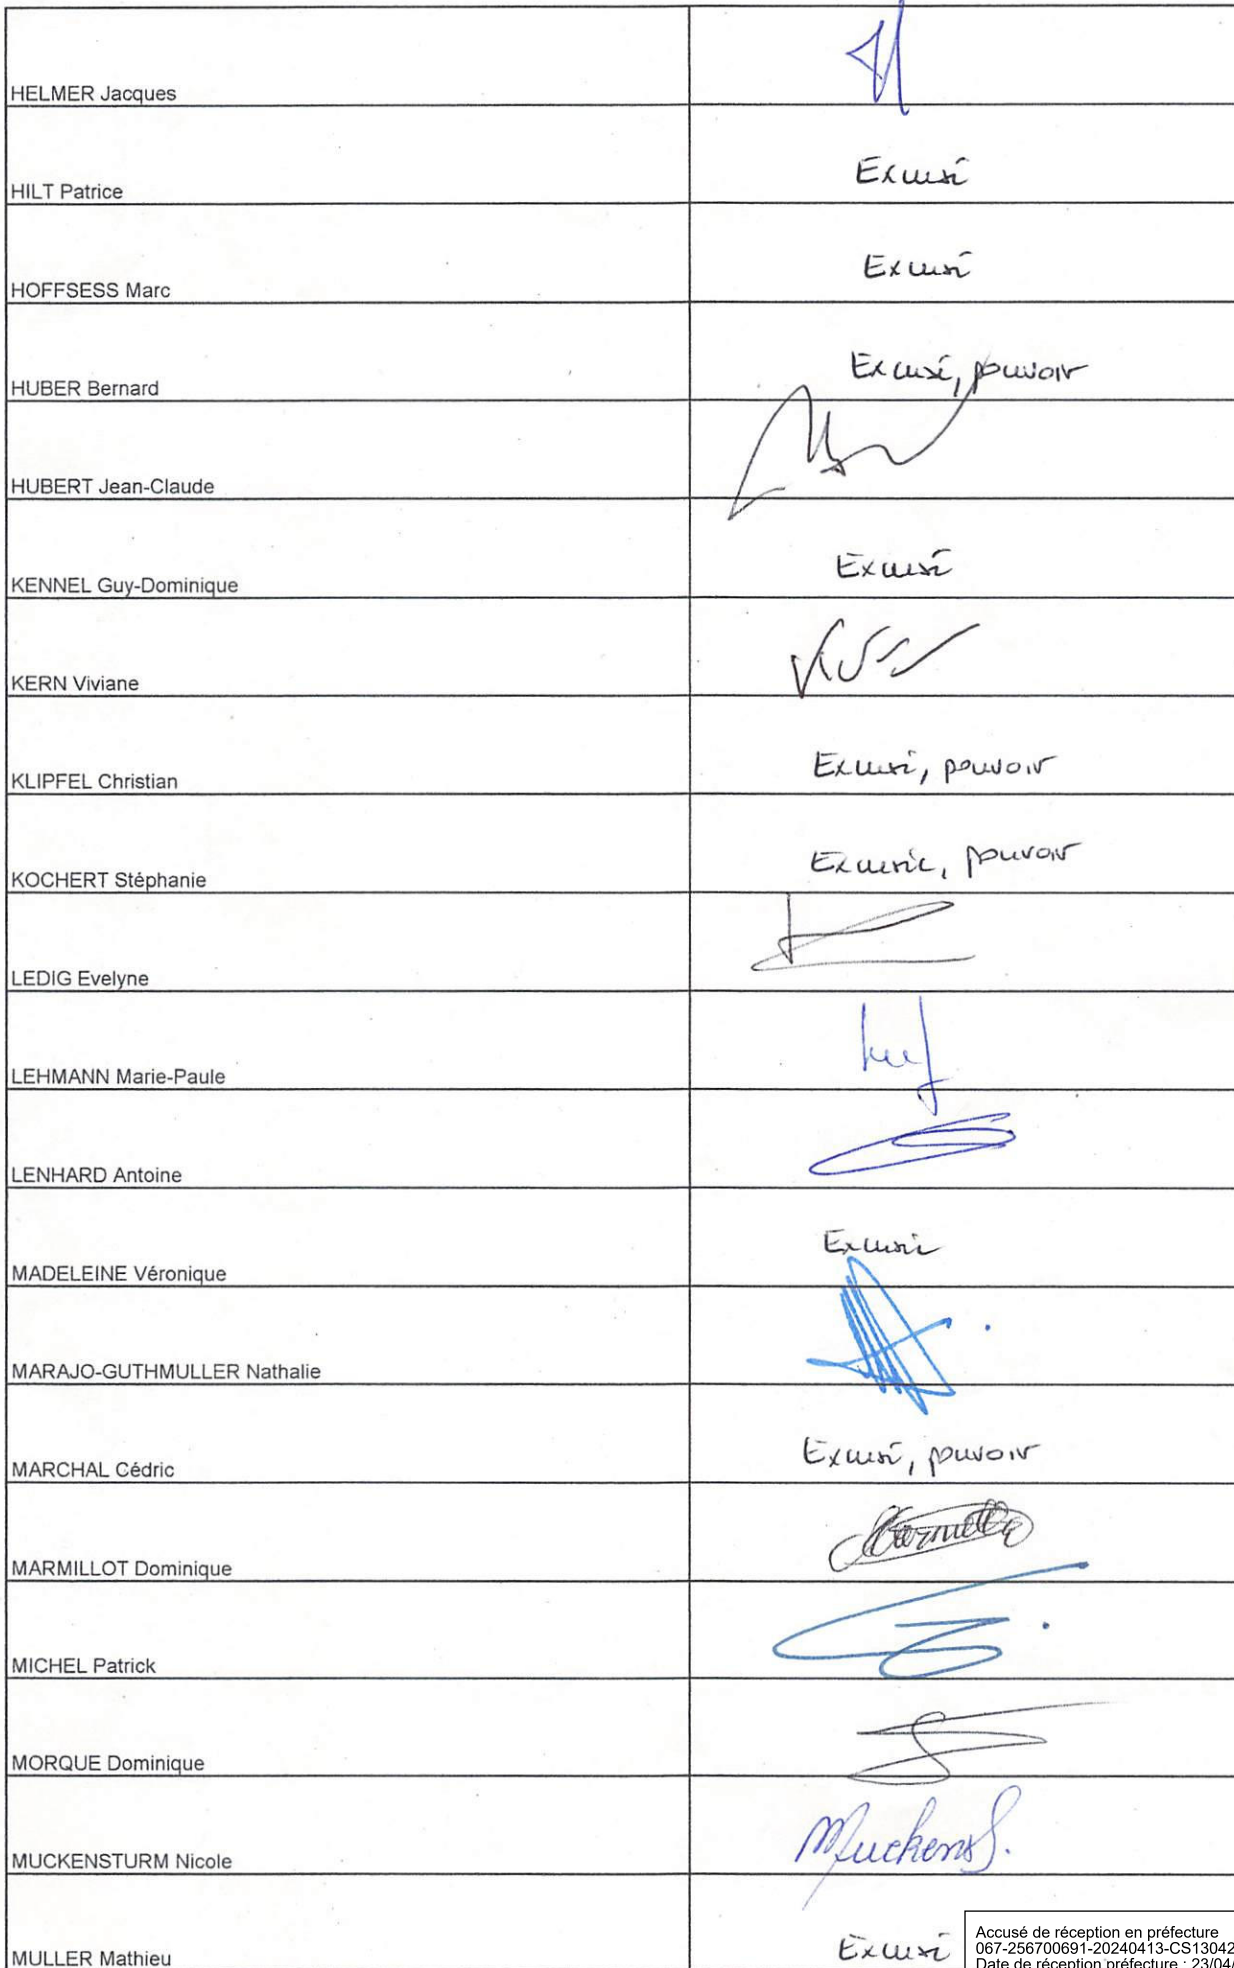 HELMER Jacques
HILT Patrice Excusé
HOFFSESS Marc Excusé
HUBER Bernard Excusé, pouvoir
HUBERT Jean-Claude
KENNEL Guy-Dominique Excusé
KERN Viviane
KLIPFEL Christian Excusé, pouvoir
KOCHERT Stéphanie Excusée, pouvoir
LEDIG Evelyne
LEHMANN Marie-Paule
LENHARD Antoine
MADELEINE Véronique Excusée
MARAJO-GUTHMULLER Nathalie
MARCHAL Cédric Excusé, pouvoir
MARMILLOT Dominique
MICHEL Patrick
MORQUE Dominique
MUCKENSTURM Nicole MuckensS.
MULLER Mathieu Excusé
Accusé de réception en préfecture
067-256700691-20240413-CS13042
Date de réception préfecture : 23/04/